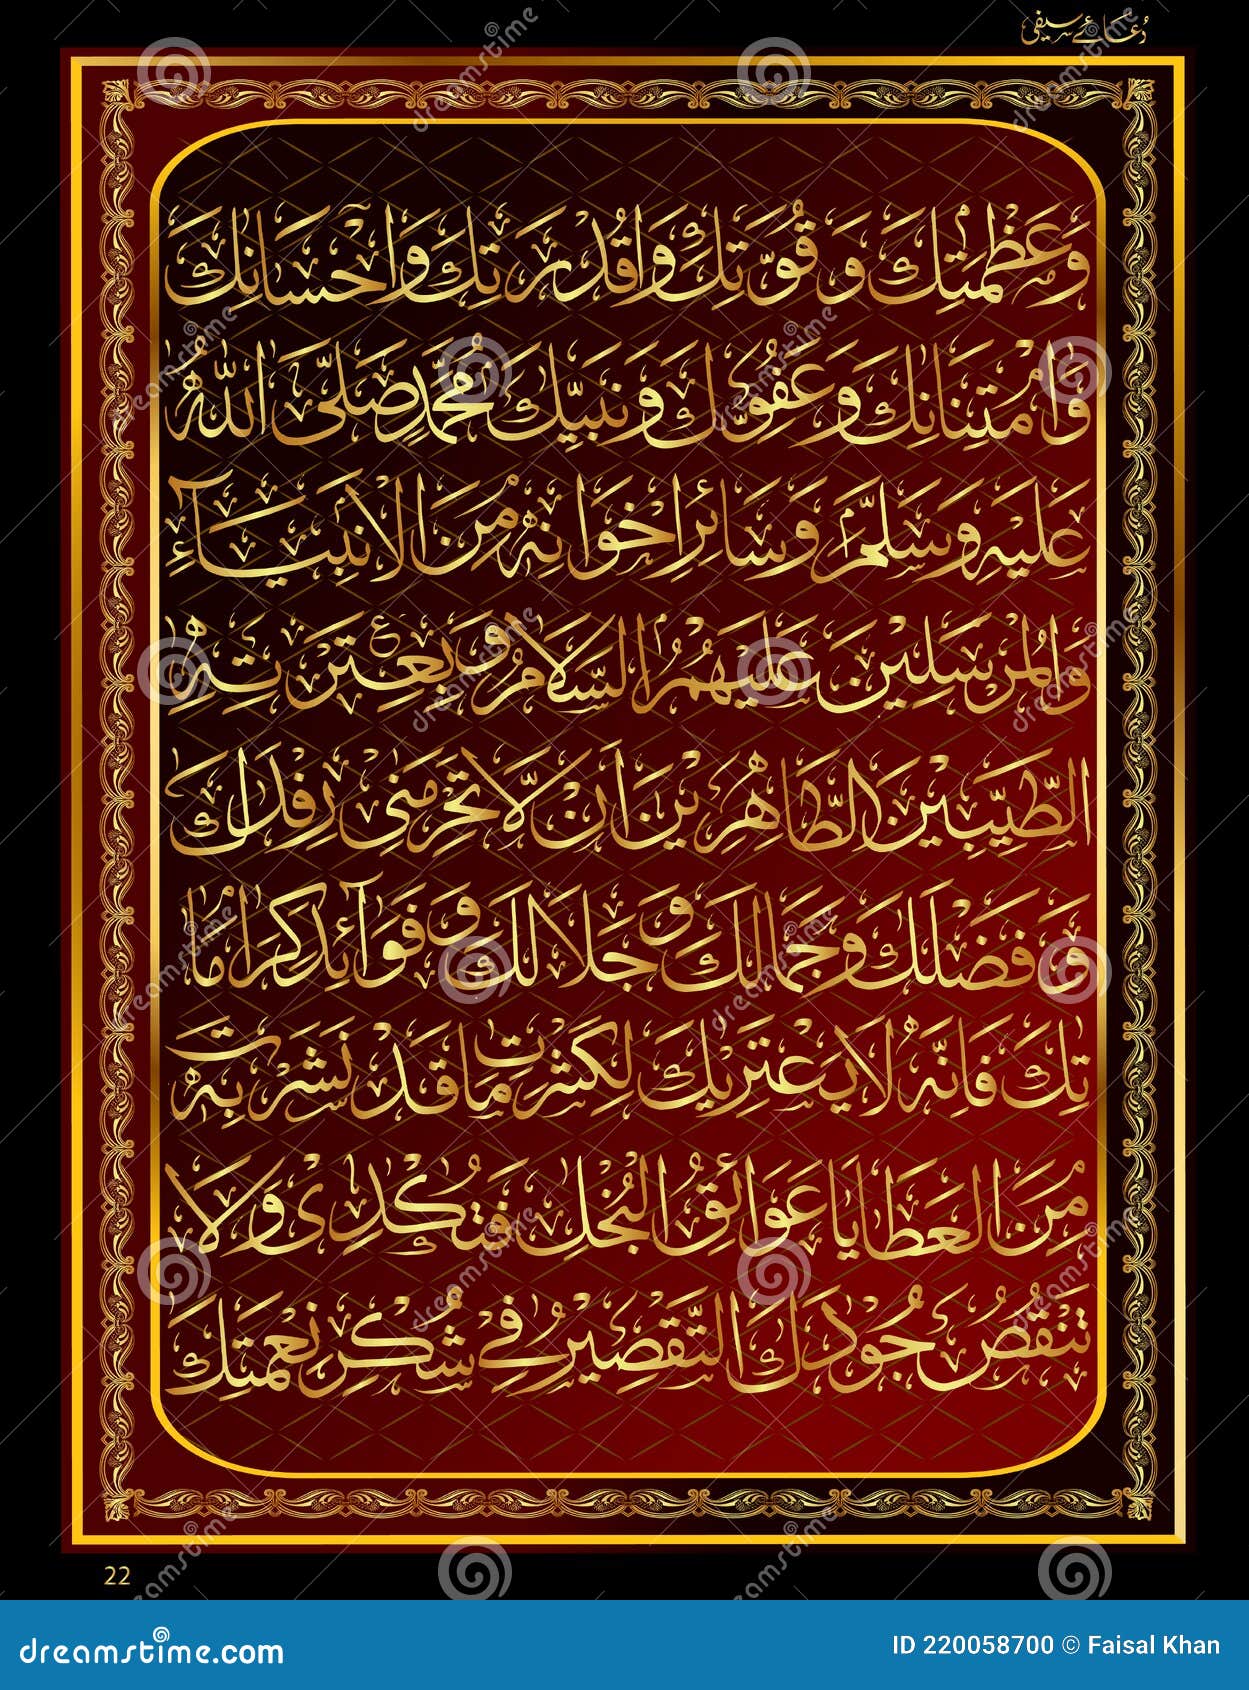 دُعَائے سیفی
وَعَظْمَتِكَ وَقُوَّتِكَ وَاقُدْرَتِكَ وَاحْسَانِكَ
وَامْتِنَانِكَ وَعَفْوِكَ وَنَبِيِّكَ مُحَمَّدٍ صَلَّى اللّٰهُ
عَلَيْهِ وَسَلَّمَ وَسَائِرِ اخْوَانِهٖ مِنَ الْاَنْبِيَآءِ
وَالْمُرْسَلِيْنَ عَلَيْهِمُ السَّلَامُ وَبِعِتْرَتِهِ
الطَّيِّبِيْنَ الطَّاهِرِيْنَ اَنْ لَّا تَحْرِمَنِىْ رِفْدَكَ
وَفَضْلَكَ وَجَمَالَكَ وَجَلَالَكَ وَفَوَآئِدَ كَرَامَا
تِكَ فَاِنَّهٗ لَا يَعْتَرِيْكَ لِكَثْرَتِ مَا قَدْ نَشَرْتَ بِهٖ
مِنَ الْعَطَايَا عَوَائِقُ الْبُخْلِ فَتُكْدِىْ وَلَا
تَنْقُصُ جُوْدَكَ التَّقْصِيْرُ فِىْ شُكْرِ نِعْمَتِكَ
22
dreamstime.com
ID 220058700 © Faisal Khan